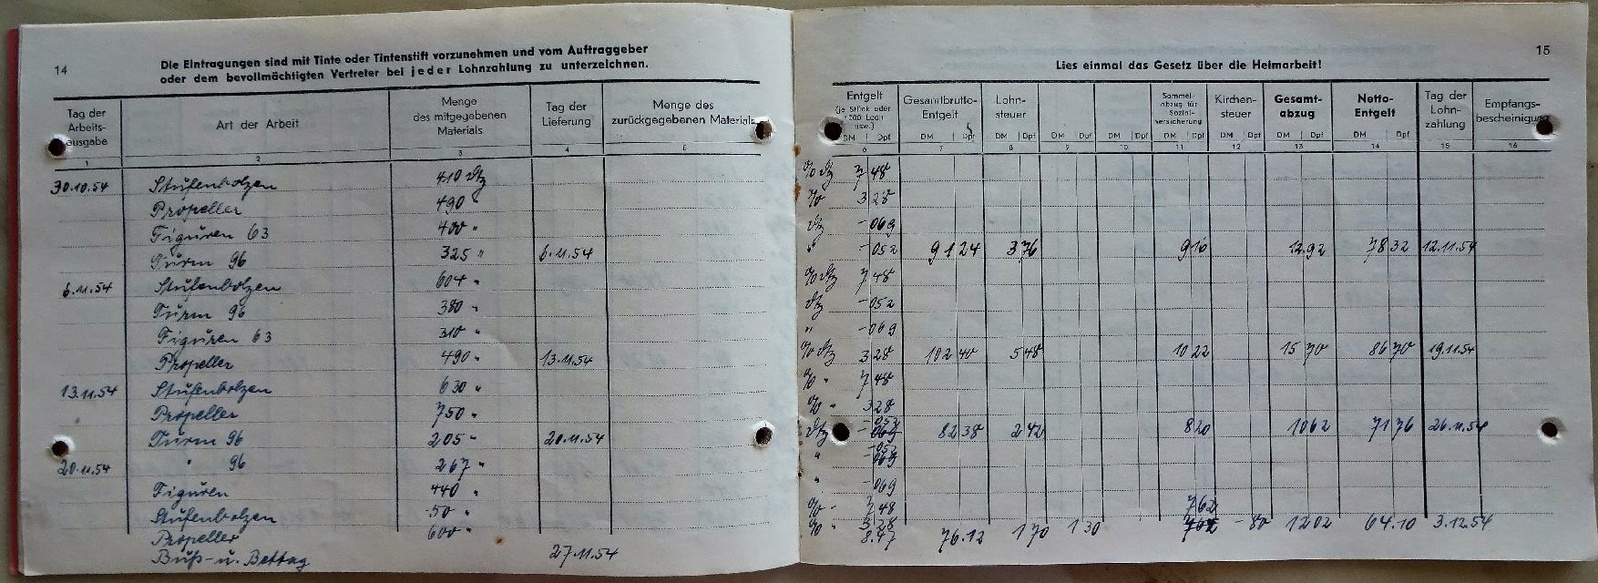 14
Die Eintragungen sind mit Tinte oder Tintenstift vorzunehmen und vom Auftraggeber
oder dem bevollmächtigten Vertreter bei jeder Lohnzahlung zu unterzeichnen.
Tag der Arbeitsausgabe Art der Arbeit Menge des mitgegebenen Materials Tag der Lieferung Menge des zurückgegebenen Materials
1 2 3 4 5
30.10.54 Stufenbolzen 410 Stz
Propeller 490 "
Figuren 63 400 "
Turm 96 325 " 6.11.54
6.11.54 Stufenbolzen 604 "
Turm 96 380 "
Figuren 63 310 "
Propeller 490 " 13.11.54
13.11.54 Stufenbolzen 630 "
Propeller 750 "
Turm 96 205 " 20.11.54
20.11.54 " 96 267 "
Figuren 440 "
Stufenbolzen 50 "
Propeller 600 "
Buß- u. Bettag 27.11.54
15
Lies einmal das Gesetz über die Heimarbeit!
Entgelt (je Stück oder 1000 usw.) Gesamtbrutto-Entgelt Lohnsteuer Sammelabzug für Sozialversicherung Kirchensteuer Gesamtabzug Netto-Entgelt Tag der Lohnzahlung Empfangsbescheinigung
DM Dpf DM Dpf DM Dpf DM Dpf DM Dpf DM Dpf DM Dpf DM Dpf DM Dpf
6 7 8 9 10 11 12 13 14 15 16
% Stz 7 48
% 3 28
Stz - 069
" - 052 91 24 3 76 9 16 12 92 78 32 12.11.54
% Stz 7 48
Stz - 052
" - 069
% Stz 3 28 102 40 5 48 10 22 15 70 86 70 19.11.54
% " 7 48
% " 3 28
Stz - 052 82 38 2 42 8 20 10 62 71 76 26.11.54
" - 052
" - 069
% " 7 48 7 62
% 3.28
8.47 76.12 1 70 1 30 - 80 12 02 64.10 3.12.54